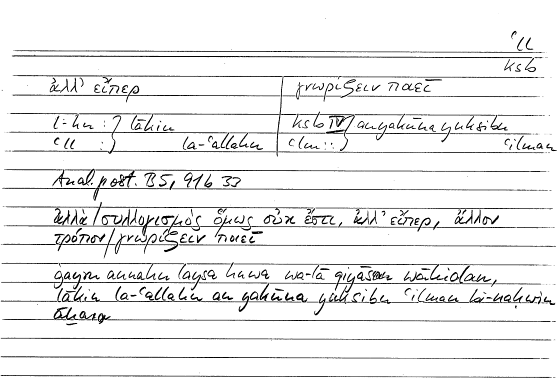 ʿll
ksb
ἀλλ' εἴπερ | γνωρίζειν ποιεῖ
l-kn : } lākin | ksb IV } an yakūna yuksibu
ʿll : } la-ʿallahu | ʿlm : : } ʿilman
Anal. post. B5, 91b 33
ἀλλὰ/συλλογισμὸς ὅμως οὐκ ἔστι, ἀλλ' εἴπερ, ἄλλον
τρόπον/γνωρίζειν ποιεῖ
ġayra annahu laysa huwa wa-lā qiyāsan wāḥidan,
lākin la-ʿallahu an yakūna yuksibu ʿilman bi-naḥwin
āḫara